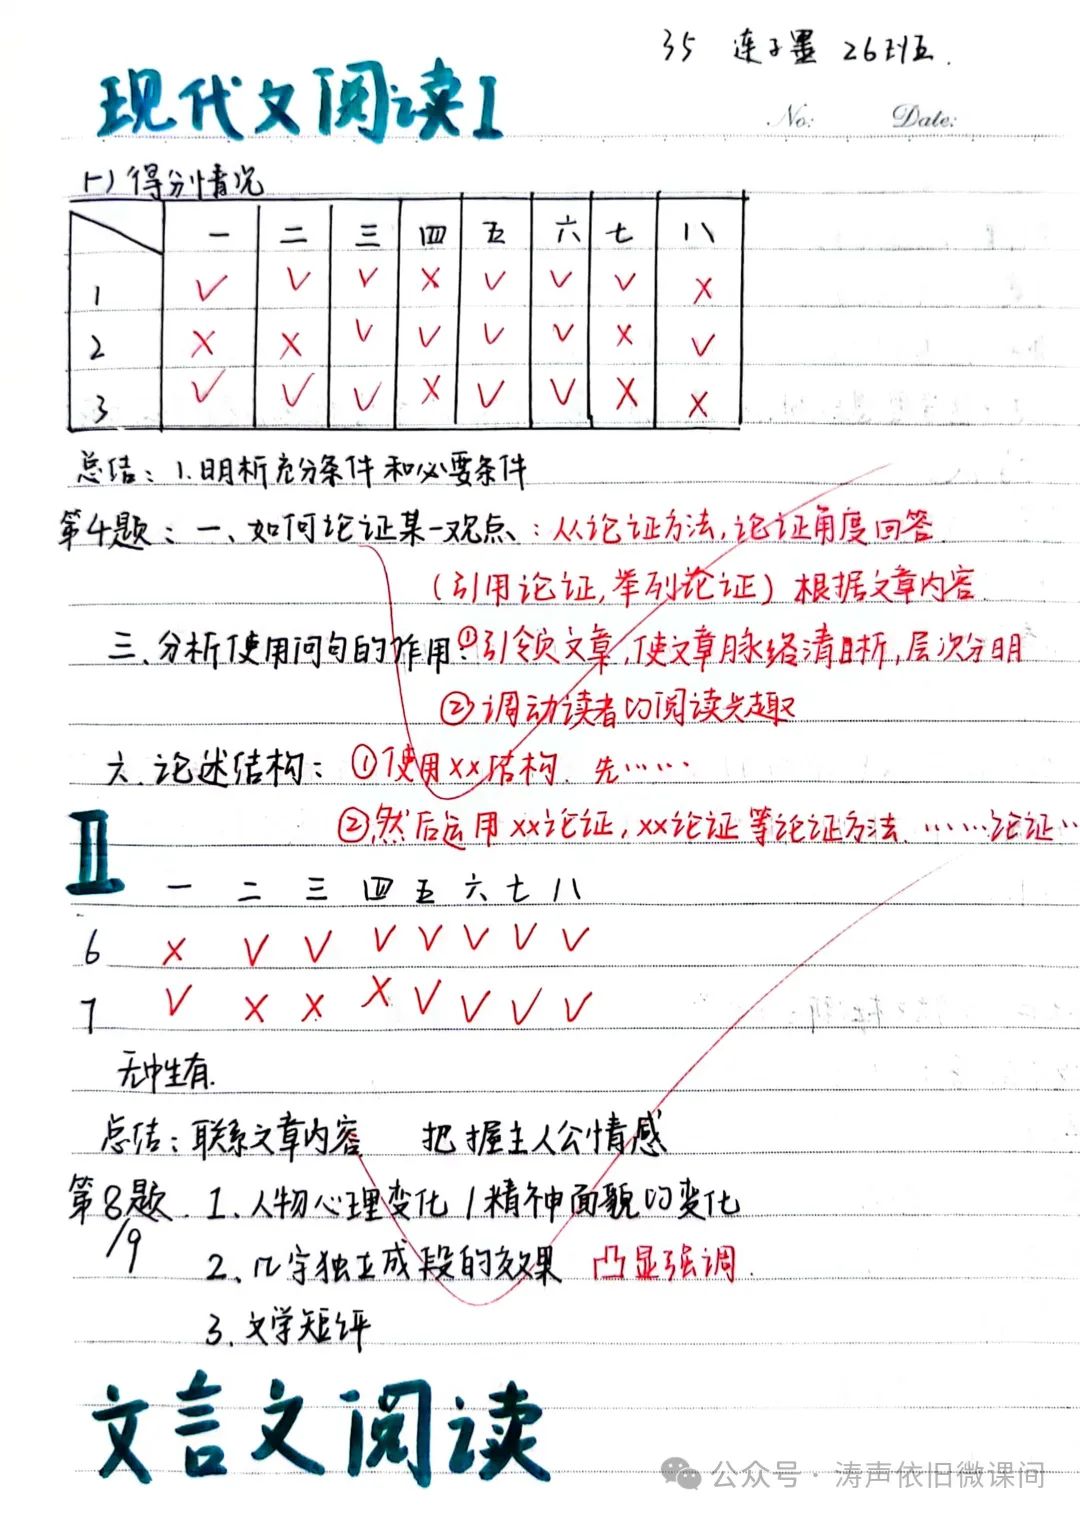 35 连子墨 26班
现代文阅读I
No: Date:
(一)得分情况
一 二 三 四 五 六 七 八
1 ✓ ✓ ✓ × ✓ ✓ ✓ ×
2 × × ✓ ✓ ✓ ✓ × ✓
3 ✓ ✓ ✓ × ✓ ✓ × ×
总结：1.明析充分条件和必要条件
第4题：一、如何论证某一观点：从论证方法,论证角度回答
(引用论证,举列论证) 根据文章内容.
三、分析使用问句的作用：①引领文章,使文章脉络清晰,层次分明
②调动读者的阅读兴趣
六、论述结构：①使用xx结构.先……
②然后运用xx论证,xx论证等论证方法.……论证…
II
一 二 三 四 五 六 七 八
6 × ✓ ✓ ✓ ✓ ✓ ✓ ✓
7 ✓ × × × ✓ ✓ ✓ ✓
无中生有.
总结：联系文章内容 把握主人公情感
第8题 1、人物心理变化/精神面貌的变化
/9
2、几字独立成段的效果 凸显强调.
3、文学短评
文言文阅读
公众号·涛声依旧微课间